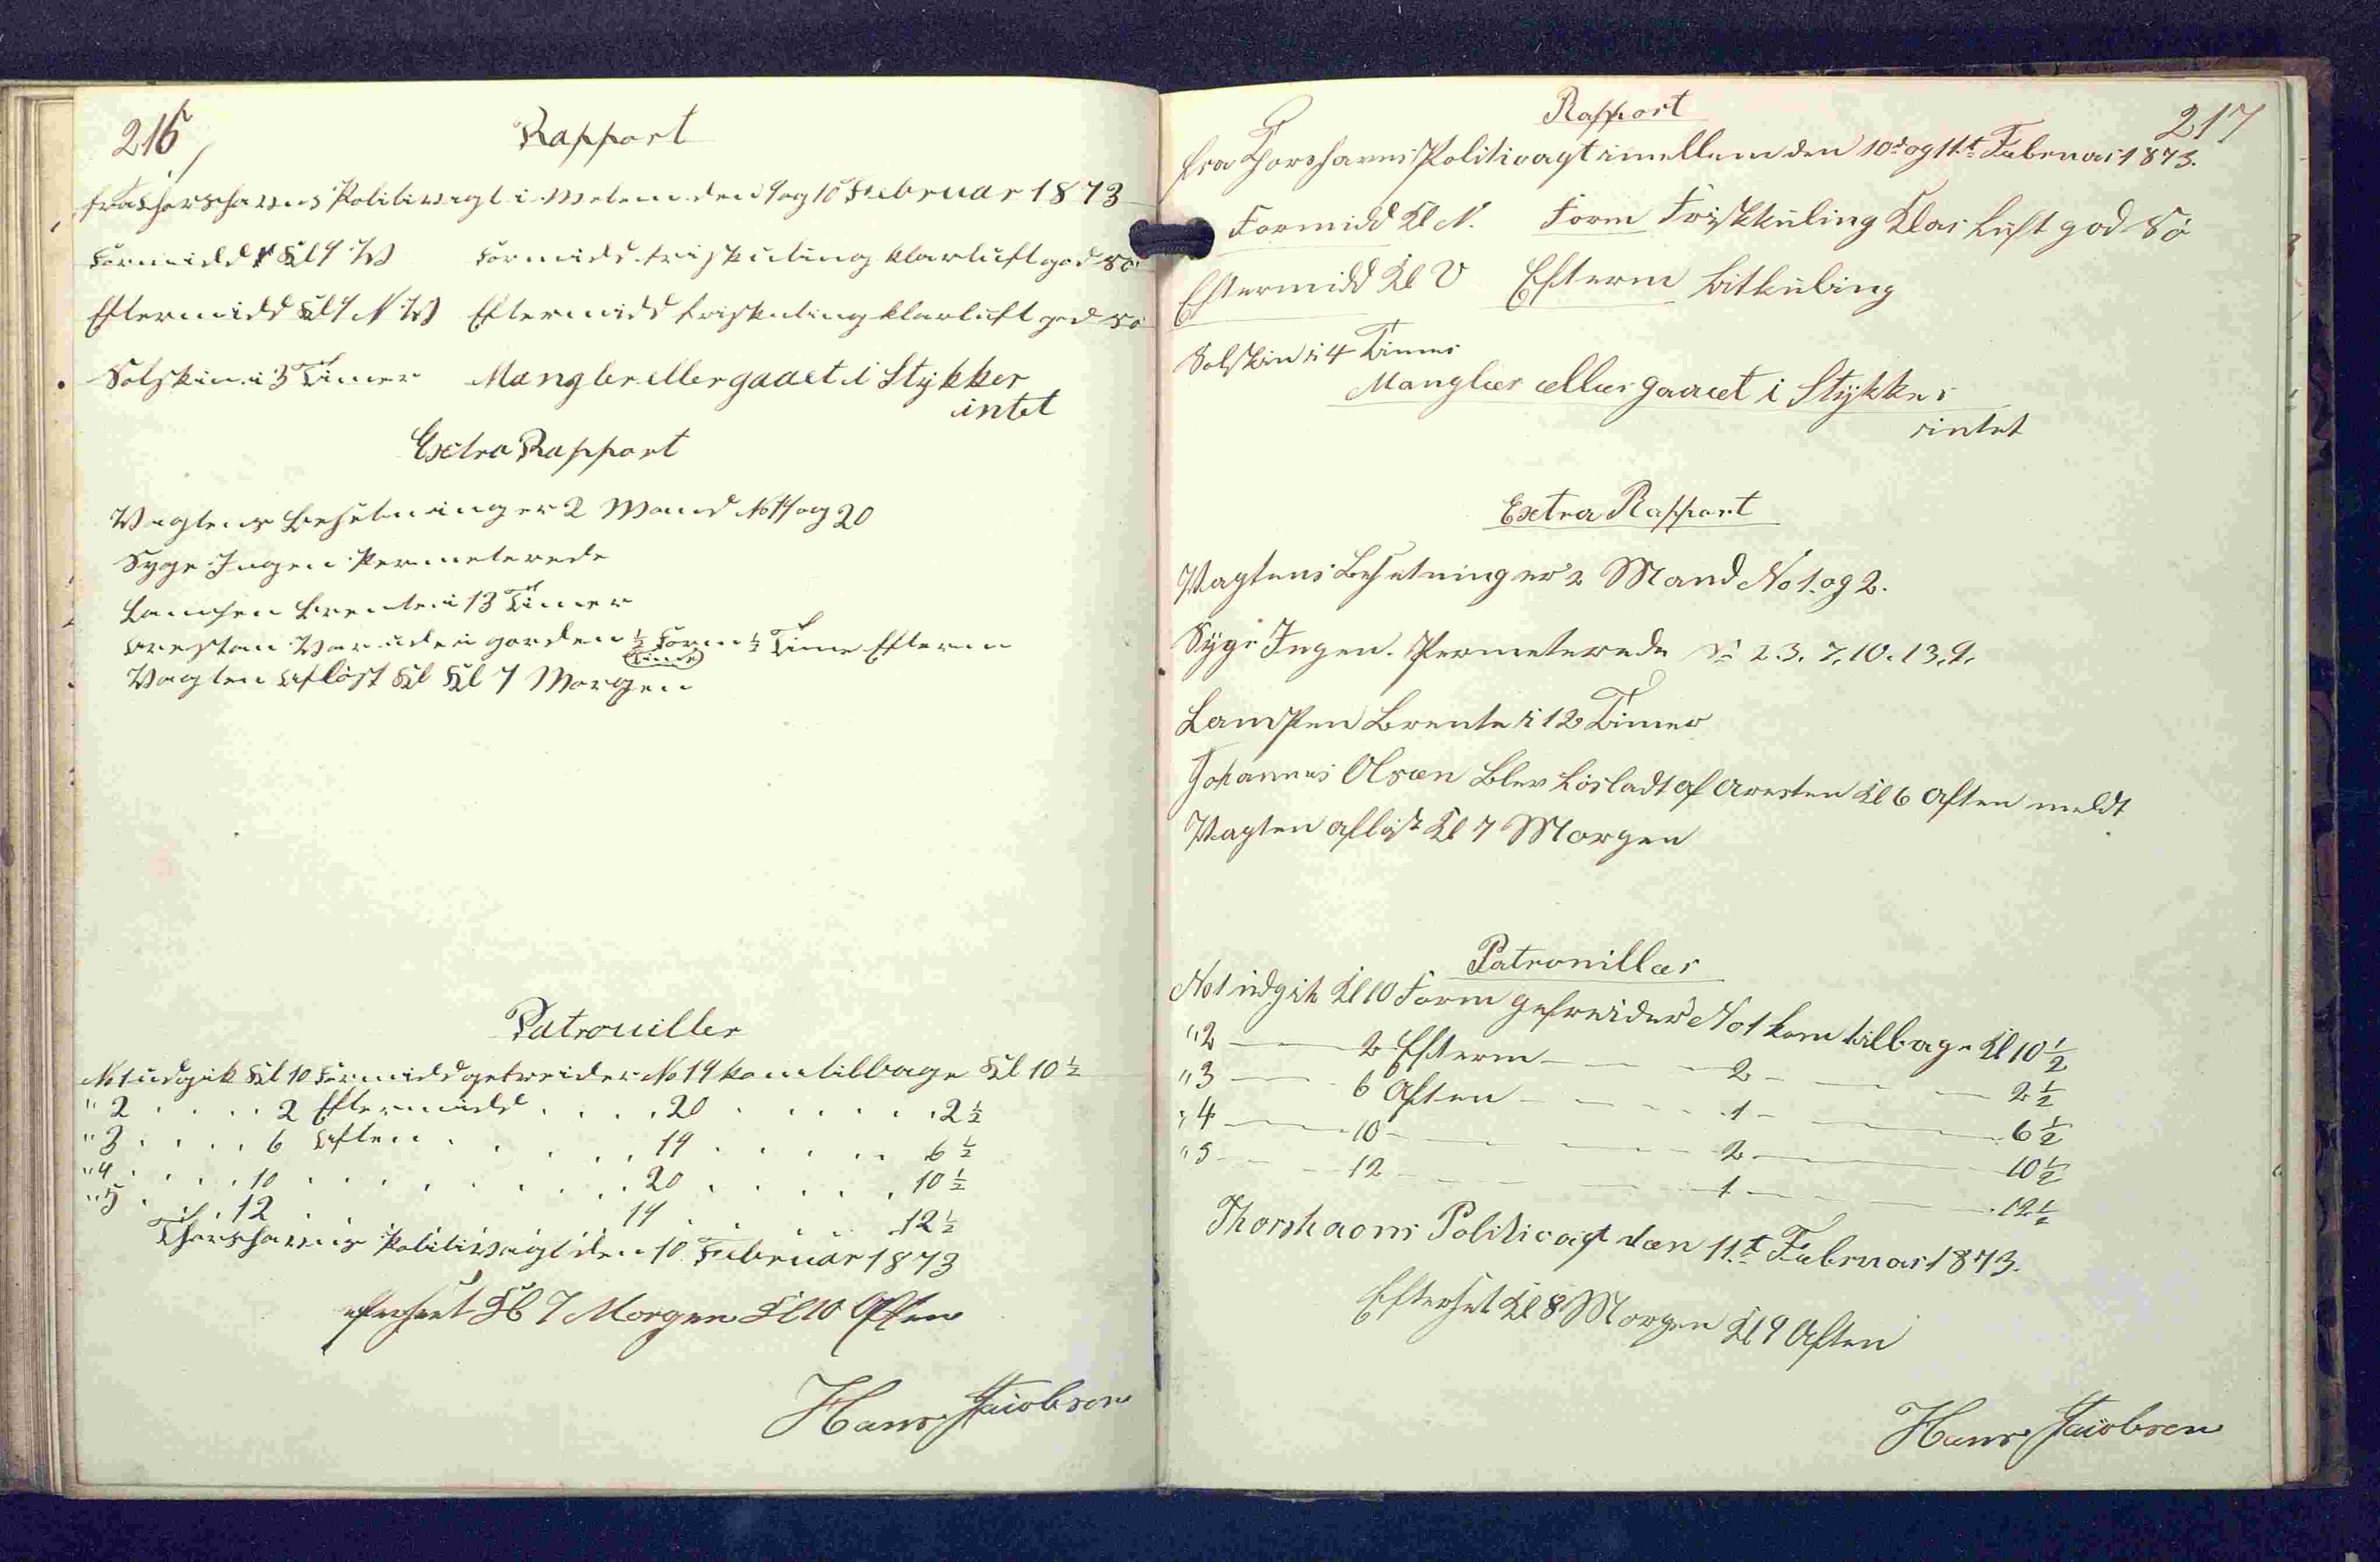 216
Rapport
fra Thorshavns Politivagt i melem den 9 og 10d Februar 1873
Formidd Kl 9 W Formidd friskuling klarluft god Sö
Eftermidd Kl 9 NW Eftermidd friskuling klarluft god Sö
Solskin i 3 Timer Mangler eller gaaet i Stykker
intet
Extra Rapport
Vagtens besetning er 2 Mand No 19 og 20
Syge Ingen Permeterede
Lampen brente i 13 Timer
Arestan Var ude i gorden ½ Form ½ Time Efterm
Time
Vagten Aflöst Kl Kl 7 Morgen
Patrouiller
No 1 udgik Kl 10 Formidd gefreider No 19 kom tilbage Kl 10 ½
" 2 . . . . 2 Eftermidd . . . . 20 . . . . . . 2 ½
" 3 . . . . 6 Aften . . . . . 19 . . . . . 6 ½
" 4 . . . . 10 . . . . . . . . 20 . . . . . 10 ½
" 5 . . . . 12 . . 19 . . . . 12 ½
Thorshavns Politivagt den 10 Februar 1873
efterseet Kl 7 Morgen Kl 10 Aften
Hans Jacobsen
217
Rapport
fra Thorshavns Politivagt imellem den 10d og 11t Februar 1873.
Formidd Kl N. Form Friskkuling Klar Luft god Sö
Eftermidd Kl V Efterm Litkuling
Solskin i 4 Timer
Mangler eller gaaet i Stykker
intet
Extra Rapport
Vagtens Besetning er 2 Mand No 1. og 2.
Syge Ingen. Permeterede No 2. 3. 7. 10. 13. 9.
Lampen Brente i 12 Timer
Johannes Olsen Blev Lösladt af Aresten Kl 6 Aften meldt
Vagten aflöst Kl 7 Morgen
Patrouiller
No 1 udgik Kl 10 Form gefreider No 1 kom tilbage Kl 10 ½
" 2 — 2 Efterm — 2 — 2 ½
" 3 — 6 Aften — 1 — 6 ½
" 4 — 10 — 2 — 10 ½
" 5 — 12 — 1 — 12 ½
Thorshavns Politivagt den 11t Februar 1873.
Efterset Kl 8 Morgen Kl 9 Aften
Hans Jacobsen